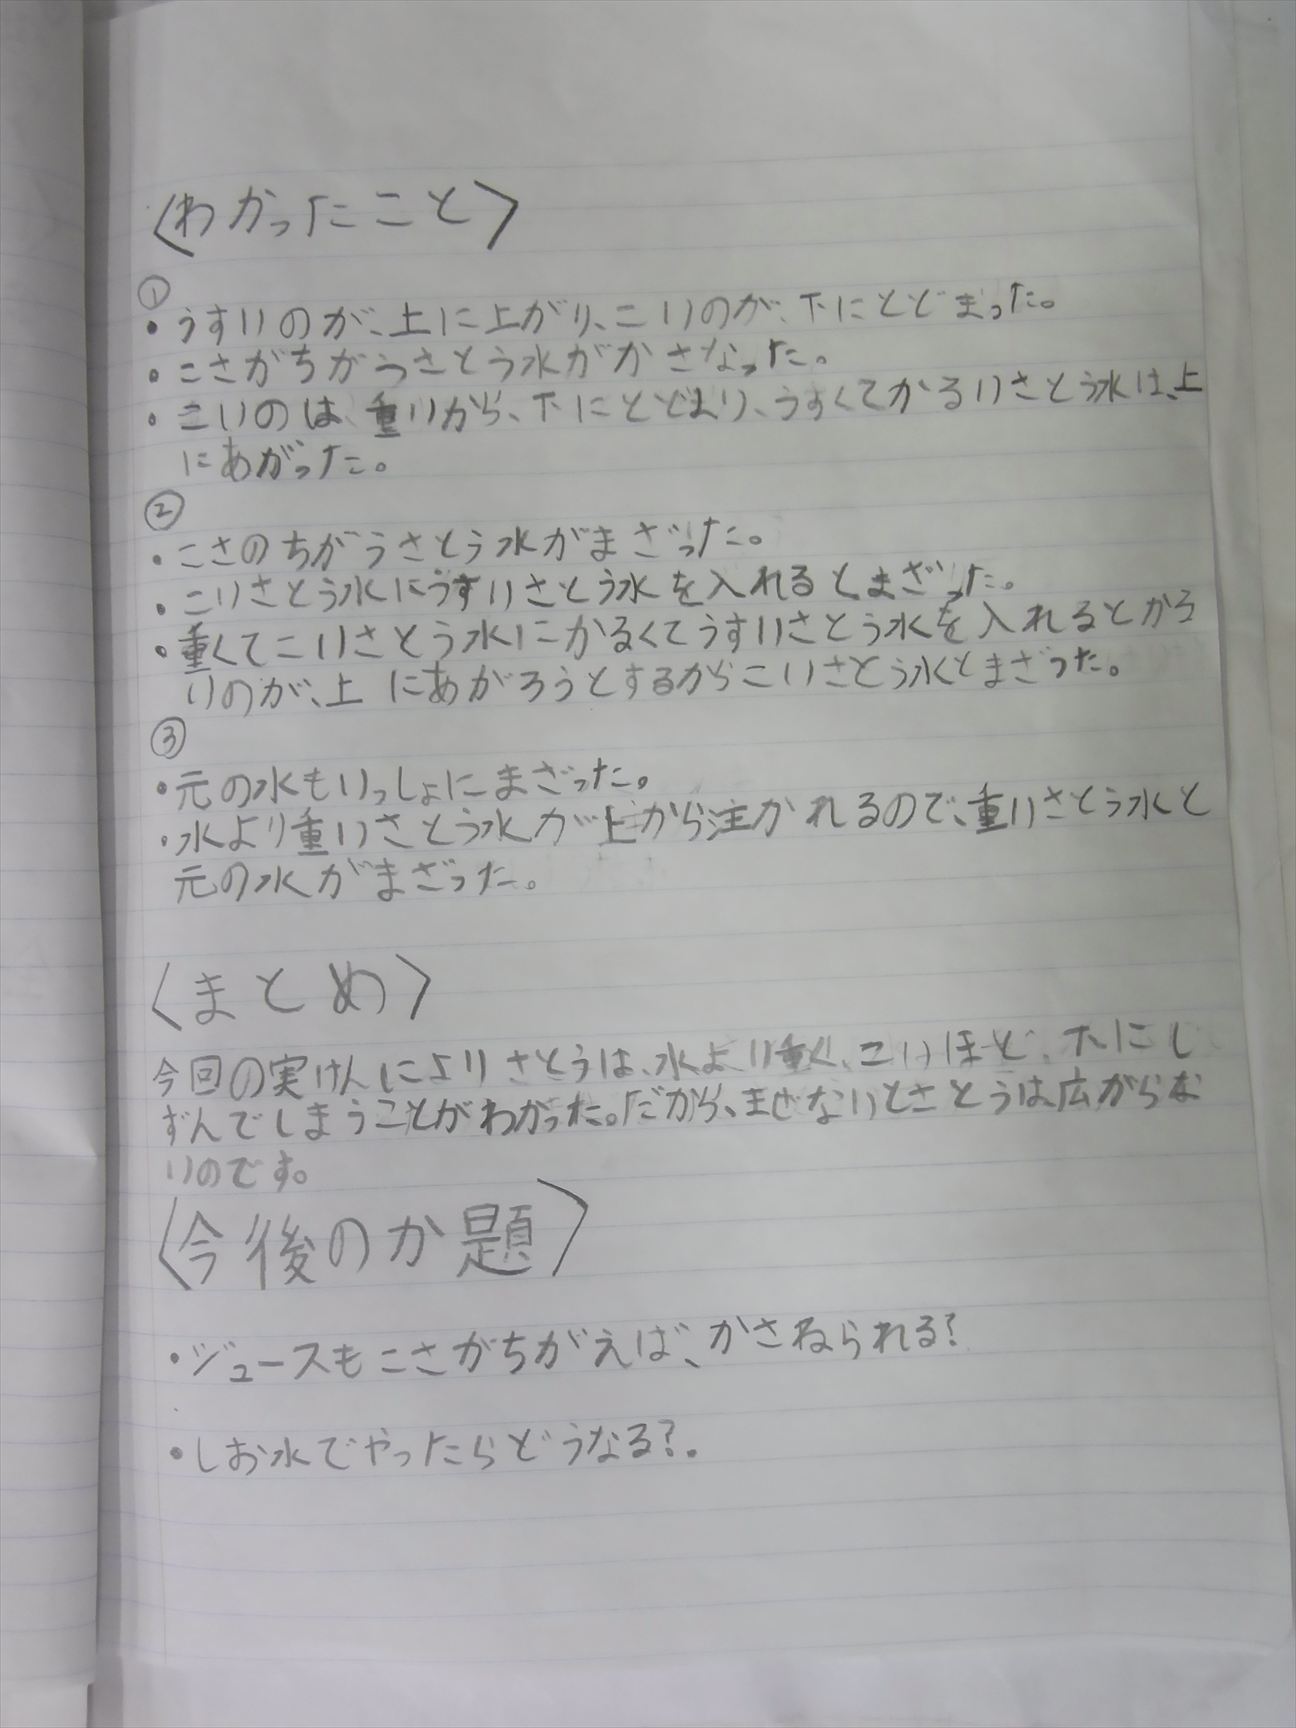 〈わかったこと〉
①
・うすいのが、上に上がり、こいのが、下にとどまった。
・こさがちがうさとう水がかさなった。
・こいのは、重いから、下にとどまり、うすくてかるいさとう水は、上
にあがった。
②
・こさのちがうさとう水がまざった。
・こいさとう水にうすいさとう水を入れると、まざった。
・重くてこいさとう水にかるくてうすいさとう水を入れるとかる
いのが、上にあがろうとするからこいさとう水とまざった。
③
・元の水もいっしょにまざった。
・水より重いさとう水が上から注がれるので、重いさとう水と
元の水がまざった。
〈まとめ〉
今回の実けんによりさとうは、水より重く、こいほど、下にし
ずんでしまうことがわかった。だから、ませないとさとうは、広がらな
いのです。
〈今後のか題〉
・ジュースもこさがちがえば、かさねられる?
・しお水でやったらどうなる?。